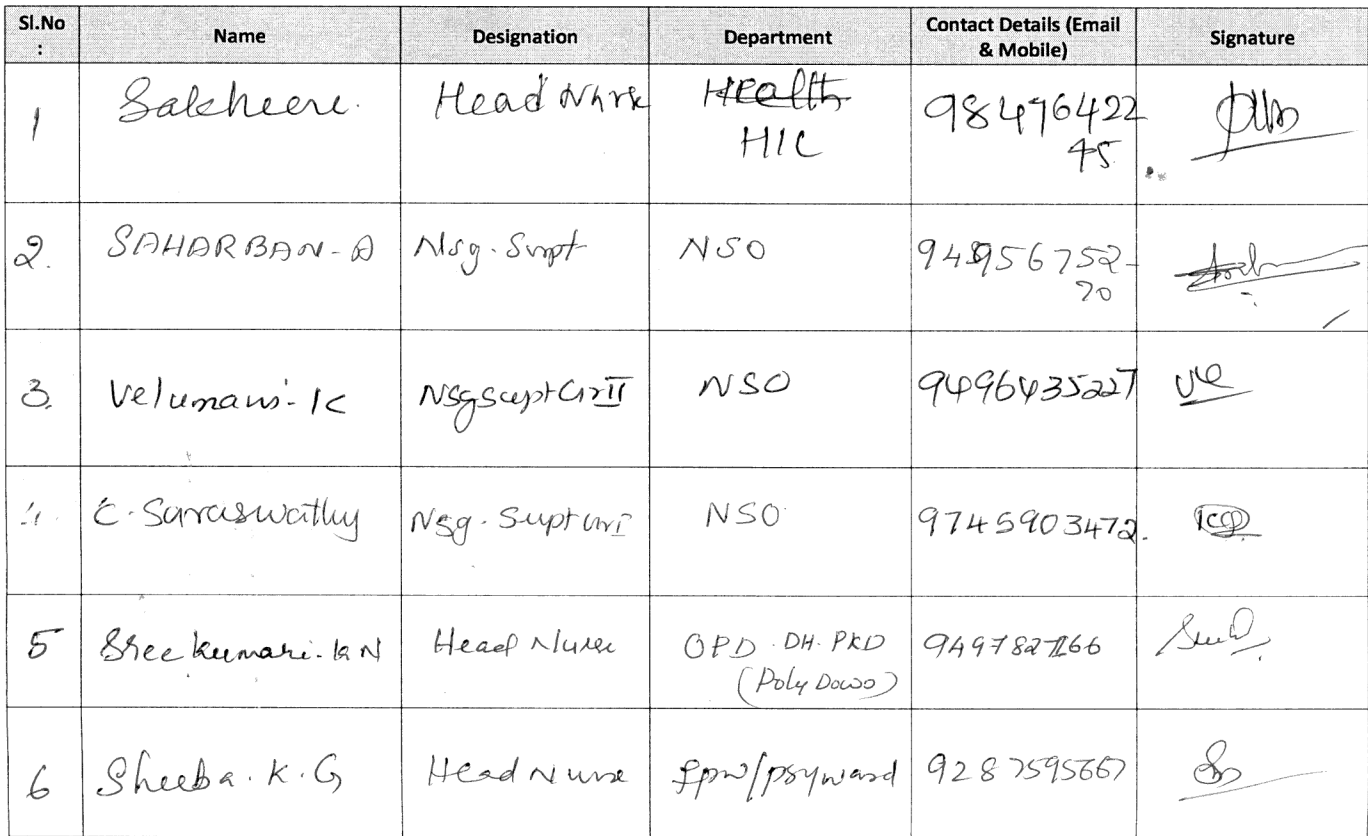 Sl.No : Name Designation Department Contact Details (Email & Mobile) Signature
1 Sakheere. Head Nurse Health HIC 9847642245
2. SAHARBAN-A Nsg. Supt NSO 9495675270
3. Velumani-K Nsg Supt Gr II NSO 9496435227
4. C. Saraswathy Nsg. Supt Gr I NSO 9745903472.
5 Sreekumari. K N Head Nurse OPD DH. PKD (Poly 9497827166
6 Sheeba. K. G Head Nurse ppw/psyward 9287595667